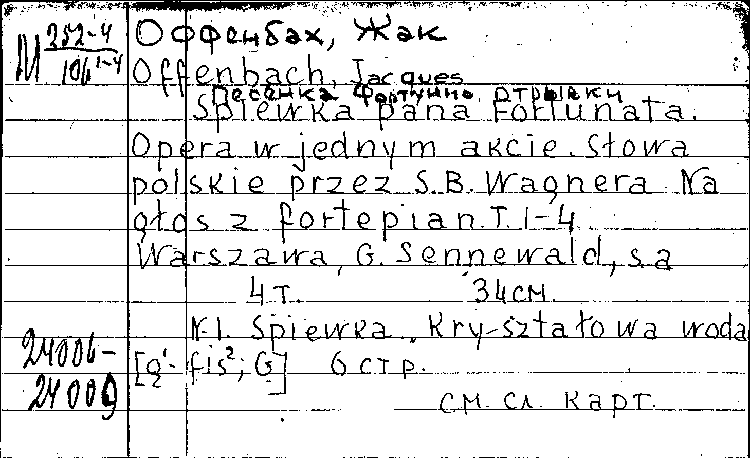 М 352-4
106 1-4
Оффенбах, Жак
Offenbach, Jacques
Песенка Фортунио. Отрывки
Śpiewka pana Fortunata.
Opera w jednym akcie. Słowa
polskie przez S.B. Wagnera Na
głos z fortepian. T. 1-4
Warszawa, G. Sennewald, s.a
4 т. 34 см.
N. 1. Śpiewka. Kry-sztalowa woda
[g¹- fis²; G] 6 стр.
24006-
24009
см. сл. карт.